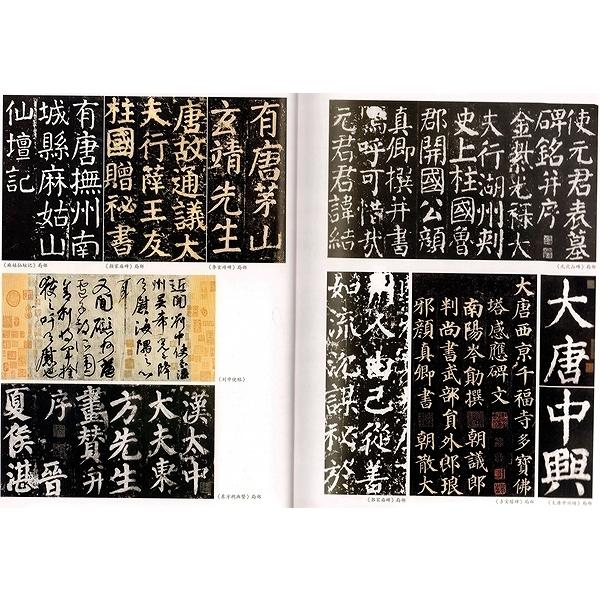 有唐茅山
玄靖先生
唐故通議大
夫行薛王友
柱國贈秘書
有唐撫州南
城縣麻姑山
仙壇記
《麻姑仙坛记》局部
《颜家庙碑》局部
《李玄靖碑》局部
近聞
《刘中使帖》
漢太中
大夫東
方先生
畫賛并
序
晉
夏侯湛
《东方朔画赞》局部
使元君表墓
碑銘并序
金紫光祿大
夫行湖州刺
史上柱國魯
郡開國公顔
真卿撰并書
嗚呼可惜哉
元君君諱結
《元次山碑》局部
大唐
中興
大唐西京千福寺多寶佛
塔感應碑文
南陽岑勛撰 朝議郎
判尚書武部員外郎琅
邪顔真卿書 朝散大
人由己從善
如流沈謀秘於
《郭家庙碑》局部
《多宝塔碑》局部
《大唐中兴颂》局部